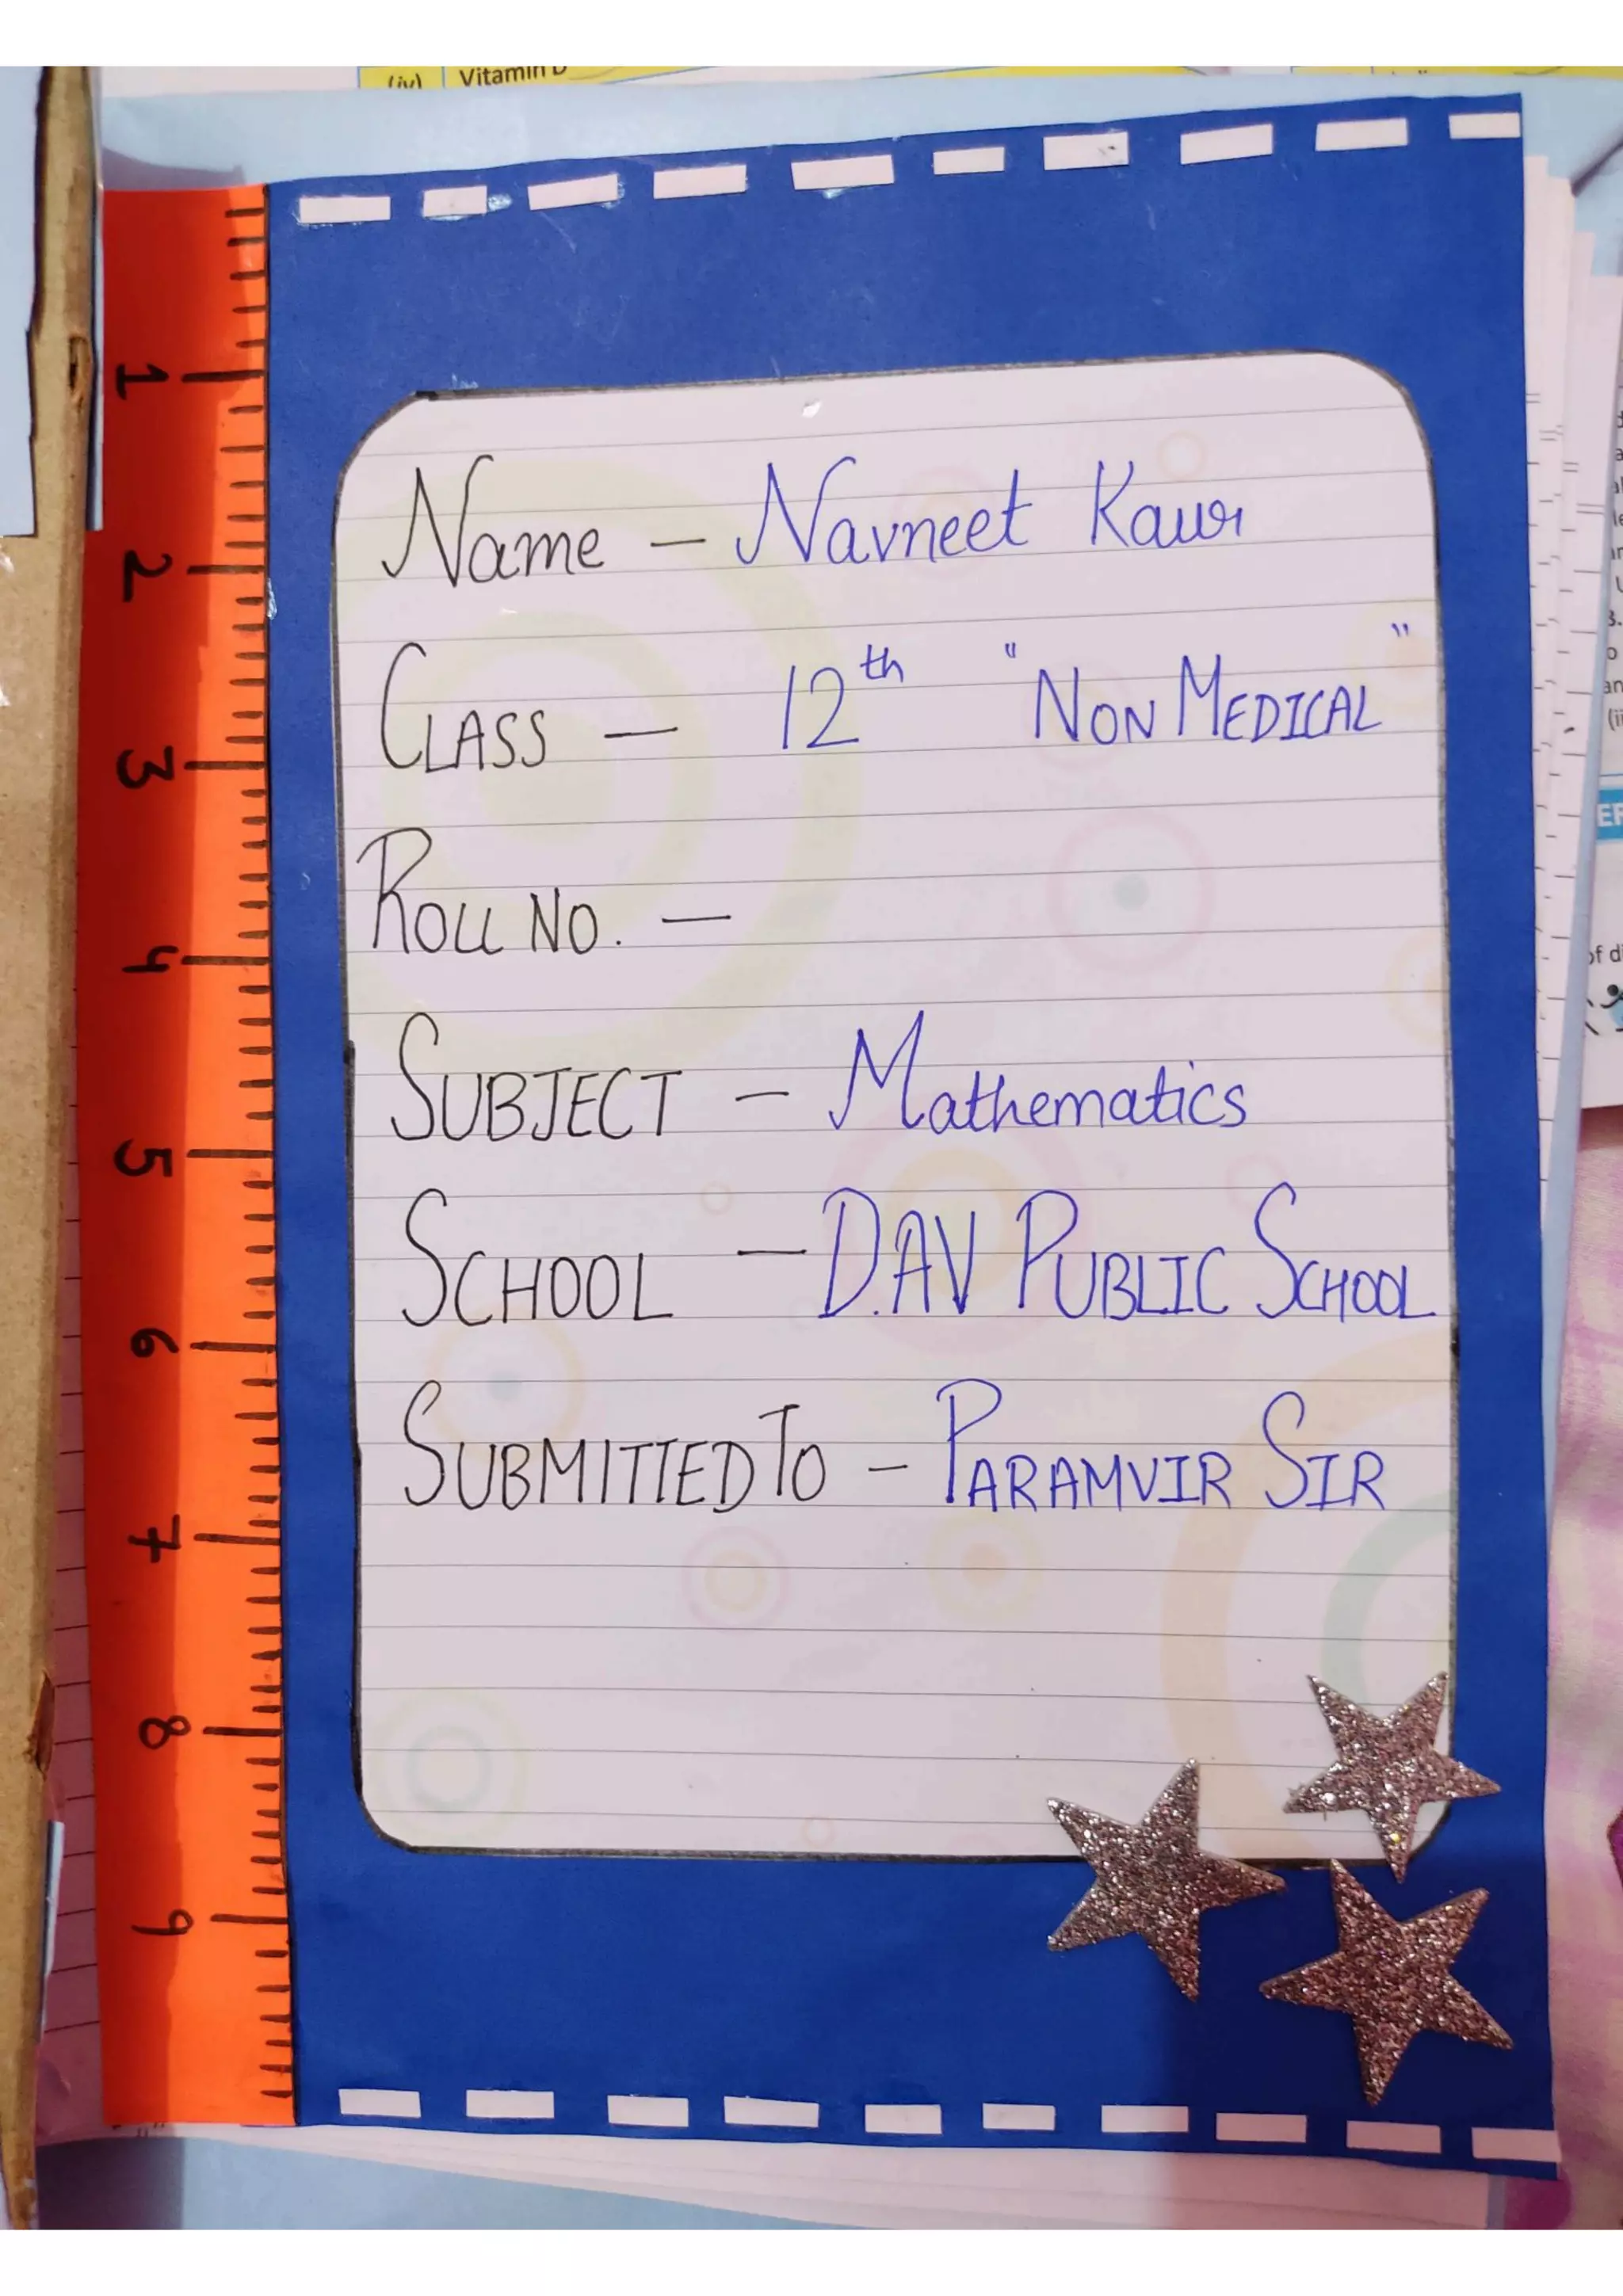 (iv) Vitamin D
Name – Navneet Kaur
CLASS – 12th "NON MEDICAL"
ROLL NO. –
SUBJECT – Mathematics
SCHOOL – D.AV PUBLIC SCHOOL
SUBMITTED TO – PARAMVIR SIR
1
2
3
4
5
6
7
8
9
of d